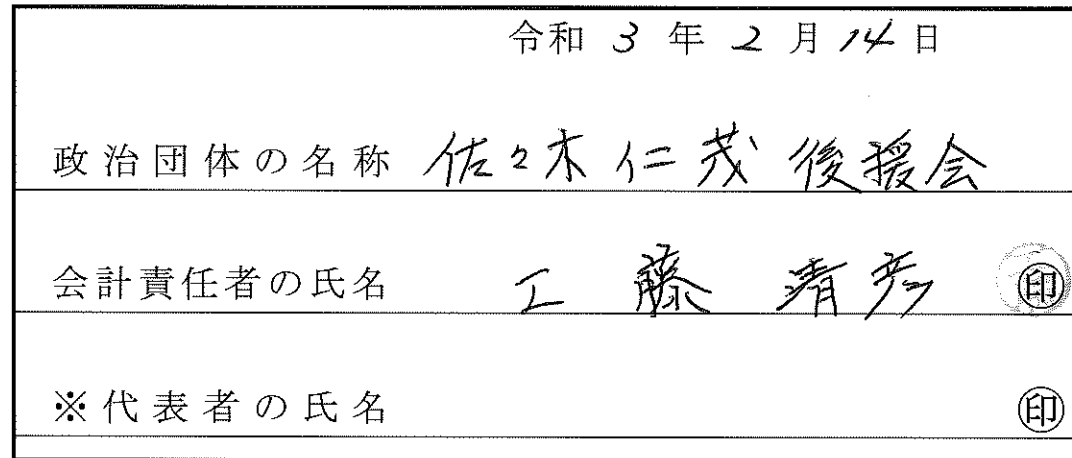 令和 3 年 2 月 14 日
政治団体の名称 佐々木仁茂後援会
会計責任者の氏名 工藤清彦 ㊞
※代表者の氏名 ㊞